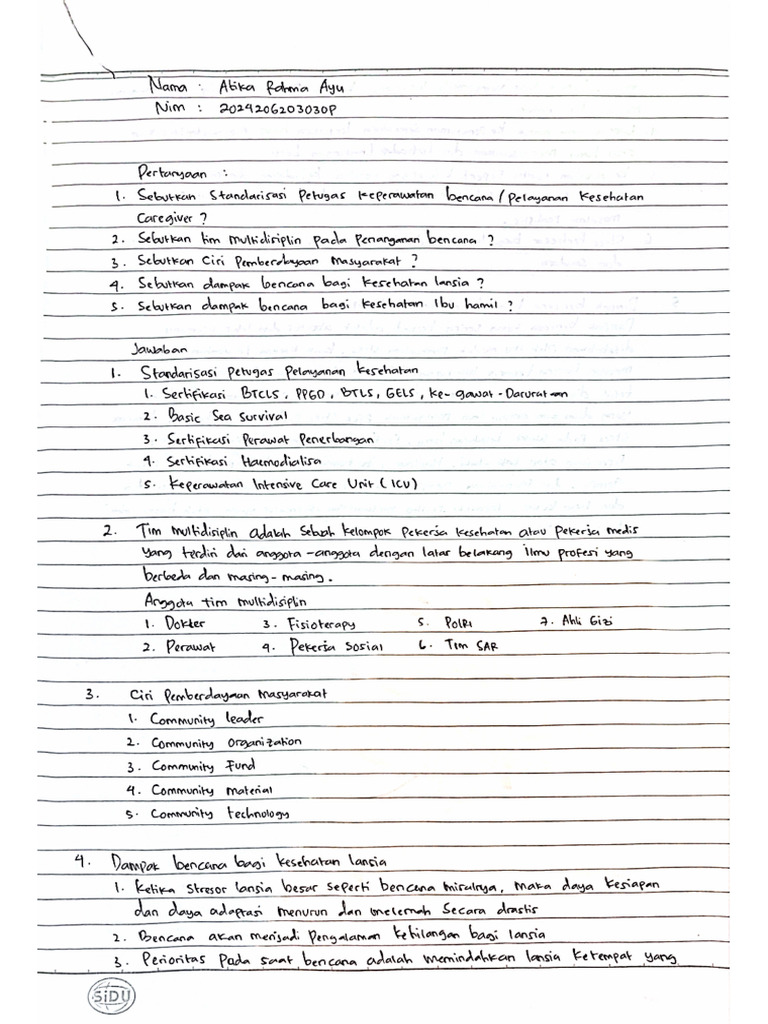 Nama : Atika Rahma Ayu
Nim : 2024206203030P
Pertanyaan :
1. Sebutkan Standarisasi Petugas keperawatan bencana / Pelayanan Kesehatan
Caregiver ?
2. Sebutkan tim multidisiplin pada Penanganan bencana ?
3. Sebutkan Ciri Pemberdayaan Masyarakat ?
4. Sebutkan dampak bencana bagi kesehatan lansia ?
5. Sebutkan dampak bencana bagi kesehatan Ibu hamil ?
Jawaban
1. Standarisasi Petugas Pelayanan Kesehatan
1. Sertifikasi BTCLS, PPGD, BTLS, GELS, Ke-gawat-Daruratan
2. Basic Sea Survival
3. Sertifikasi Perawat Penerbangan
4. Sertifikasi Haemodialisa
5. Keperawatan Intensive Care Unit (ICU)
2. Tim multidisiplin adalah Sebuah kelompok pekerja kesehatan atau pekerja medis
yang terdiri dari anggota-anggota dengan latar belakang ilmu profesi yang
berbeda dan masing-masing.
Anggota tim multidisiplin
1. Dokter 3. Fisioterapy 5. POLRI 7. Ahli Gizi
2. Perawat 4. Pekerja Sosial 6. Tim SAR
3. Ciri Pemberdayaan Masyarakat
1. Community leader
2. Community organization
3. Community Fund
4. Community material
5. Community technology
4. Dampak bencana bagi kesehatan lansia
1. Ketika stresor lansia besar seperti bencana misalnya, maka daya kesiapan
dan daya adaptasi menurun dan melemah secara drastis
2. Bencana akan menjadi Pengalaman kehilangan bagi lansia
3. Perioritas Pada saat bencana adalah memindahkan lansia ketempat yang
SiDU